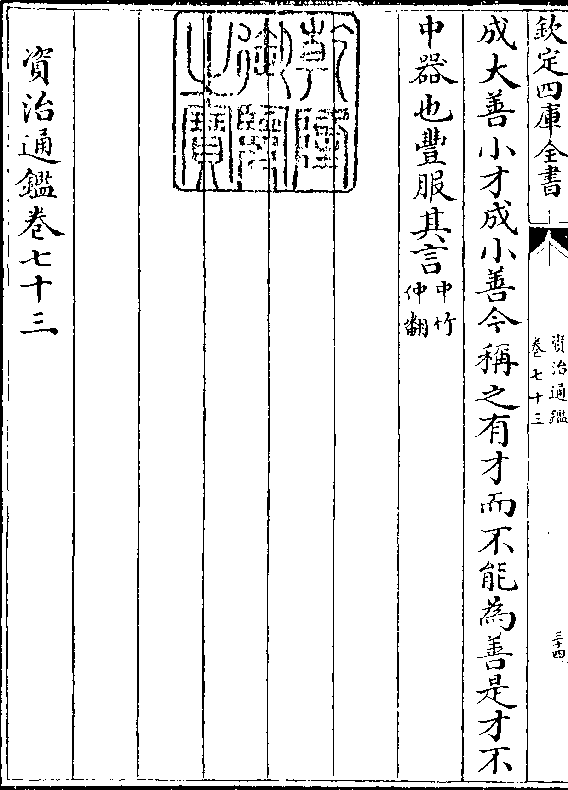 欽定四庫全書
資治通鑑
卷七十三
三十四
成大善小才成小善今稱之有才而不能為善是才不
中器也豐服其言中竹
仲翻
乾隆
御覽
之寶
資治通鑑卷七十三